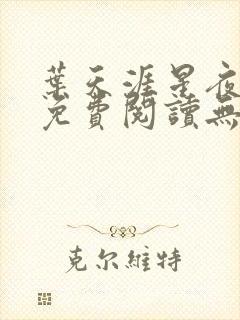 葉天涯星夜
免費閱讀無
克尔維特